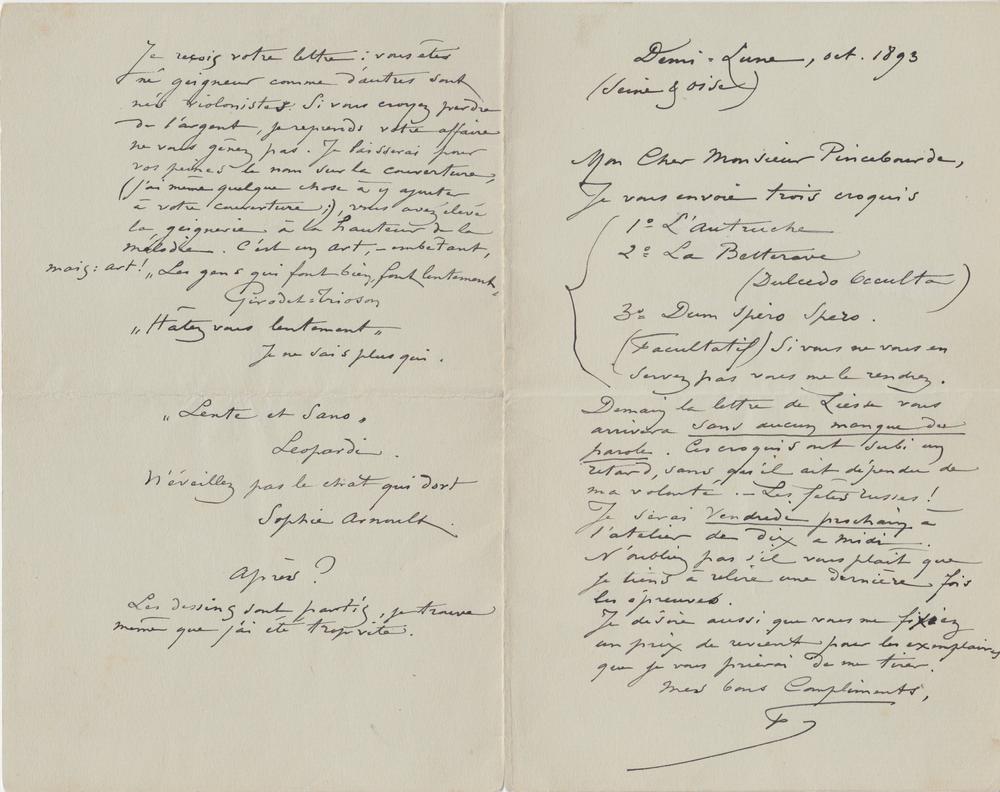 Demi-Lune, oct. 1893
(Seine & Oise)
Mon Cher Monsieur Pincebourde,
Je vous envoie trois croquis
1º L'Autruche
2º La Betterave
(Dulcedo Occulta)
3º Dum Spiro Spero.
(Facultatif) Si vous ne vous en
servez pas vous me le rendrez.
Demain la lettre de Liesse vous
arrivera sans aucun manque de
parole. Ces croquis ont subi un
retard, sans qu'il ait dépendu de
ma volonté. — Les fêtes russes!
Je serai Vendredi prochain à
l'atelier de dix a midi.
N'oubliez pas s'il vous plait que
je tiens à relire une dernière fois
les épreuves.
Je désire aussi que vous me fixiez
un prix de revient pour les exemplaires
que je vous prierai de me tirer.
mes bons Compliments,
Je reçois votre lettre : vous êtes
né geigneur comme d'autres sont
nés violonistes. Si vous croyez perdre
de l'argent, je reprends votre affaire
ne vous gênez pas. Je laisserai pour
vos peines le nom sur la couverture,
(j'ai même quelque chose à y ajouter
à votre couverture;), vous avez élevé
la geignerie à la hauteur de la
mélodie. C'est un art, - embêtant,
mais : art! „Les gens qui font bien, font lentement„
Girodet-Trioson
„Hâtez vous lentement„
Je ne sais plus qui.
„Lente et Sano„
Leopardi.
N'éveillez pas le chat qui dort
Sophie Arnoult.
Après?
Les dessins sont partis, je trouve
même que j'ai été trop vite.